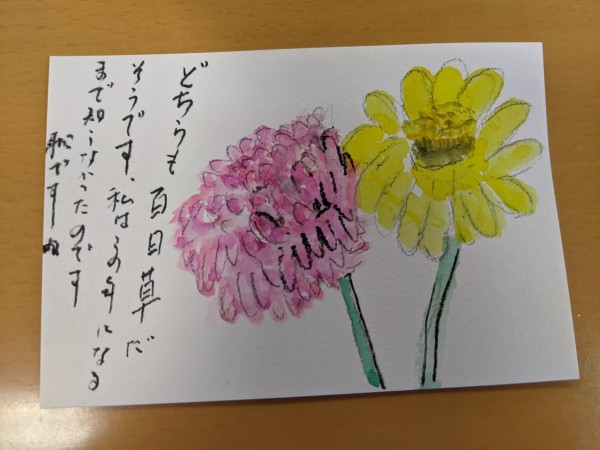 どちらも
百日草だ
そうです、私はこの年になる
まで知らなかったのです
恥ですね